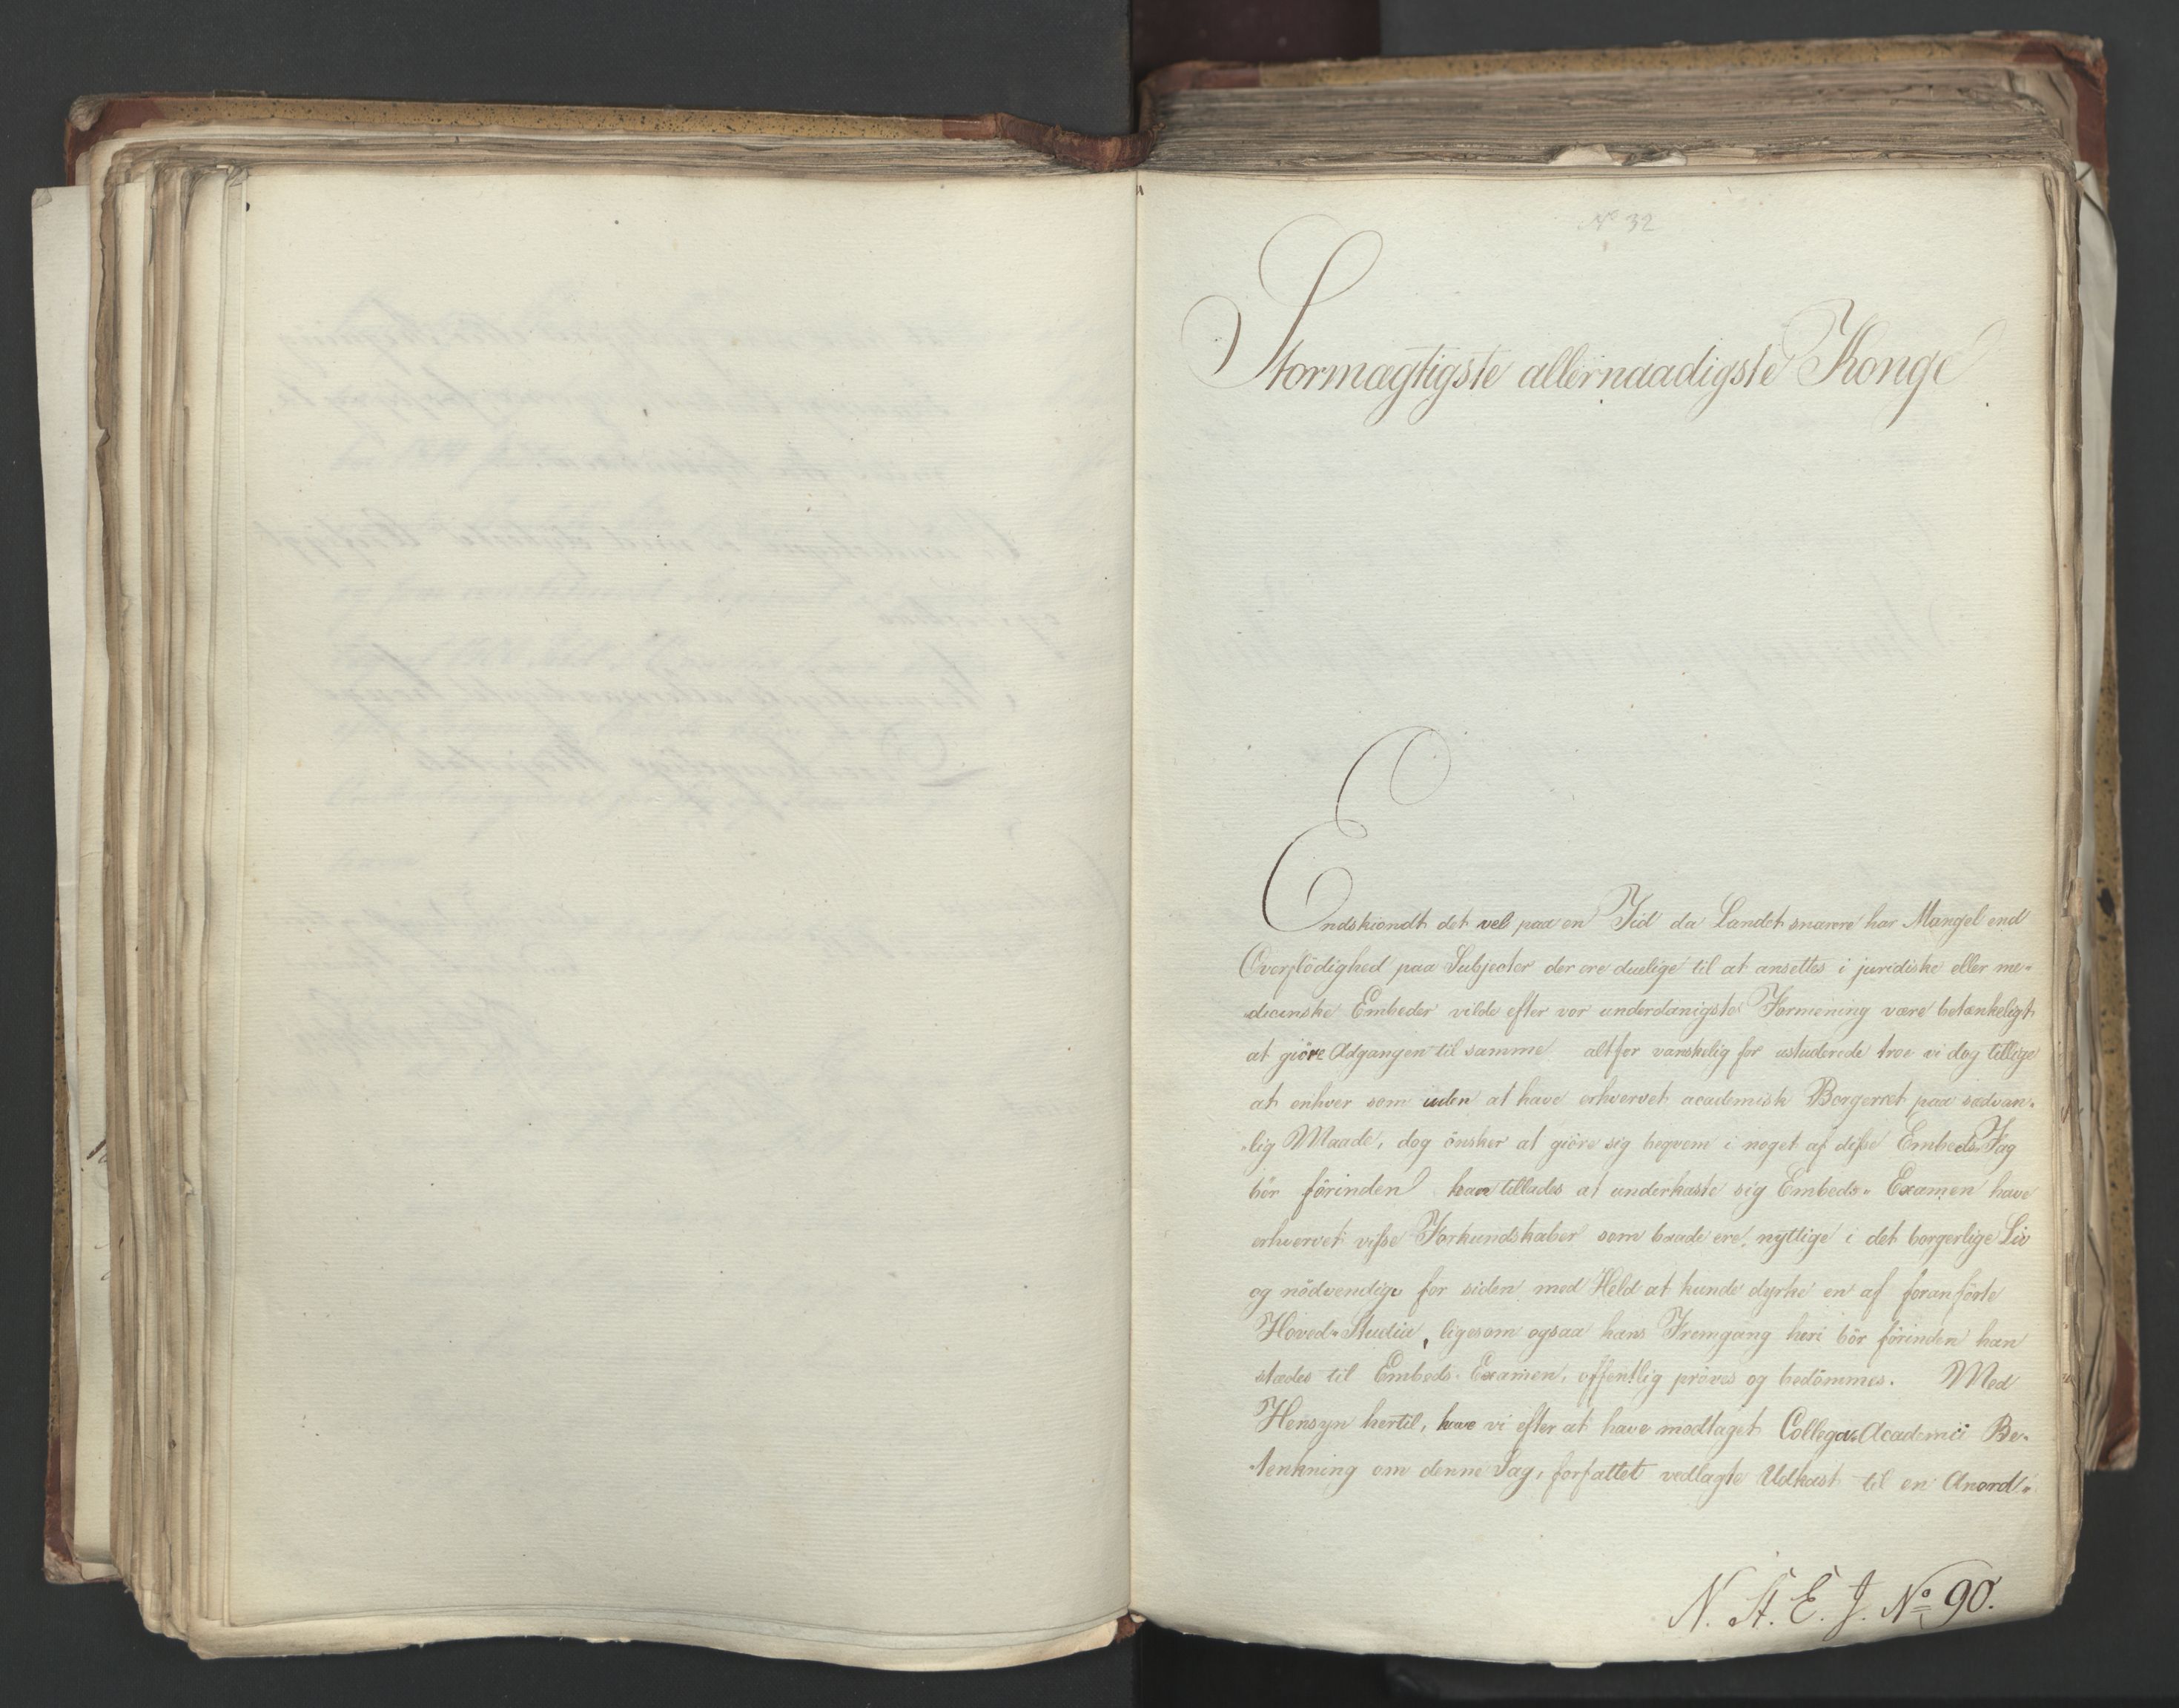 No 32
Stormægtigste allernaadigste Konge
Endskiøndt det vel paa en Tid da Landet snarere har Mangel end
Overflödighed paa Subjecter der ere duelige til at ansettes i juridiske eller me-
dicinske Embeder vilde efter vor underdanigste Formening være betænkeligt
at giöre Adgangen til samme altfor vanskelig for ustuderede troe vi dog tillige
at enhver som uden at have erhvervet academisk Borgerret paa sædvan-
lig Maade, dog önsker at giöre sig beqvem i noget af disse Embeds-Fag
bör förinden han tillades at underkaste sig Embeds-Examen have
erhvervet visse Forkundskaber som baade ere nyttige i det borgerlige Liv
og nödvendige for siden med Held at kunde dyrke en af foranförte
Hoved-Studia, ligesom ogsaa hans Fremgang heri bör förinden han
stædes til Embeds-Examen, offentlig pröves og bedömmes. Med
Hensyn hertil, have vi efter at have modtaget Collegii Academici Be-
tenkning om denne Sag, forfattet vedlagte Udkast til en Anord-
N. St. E. J. No 90.